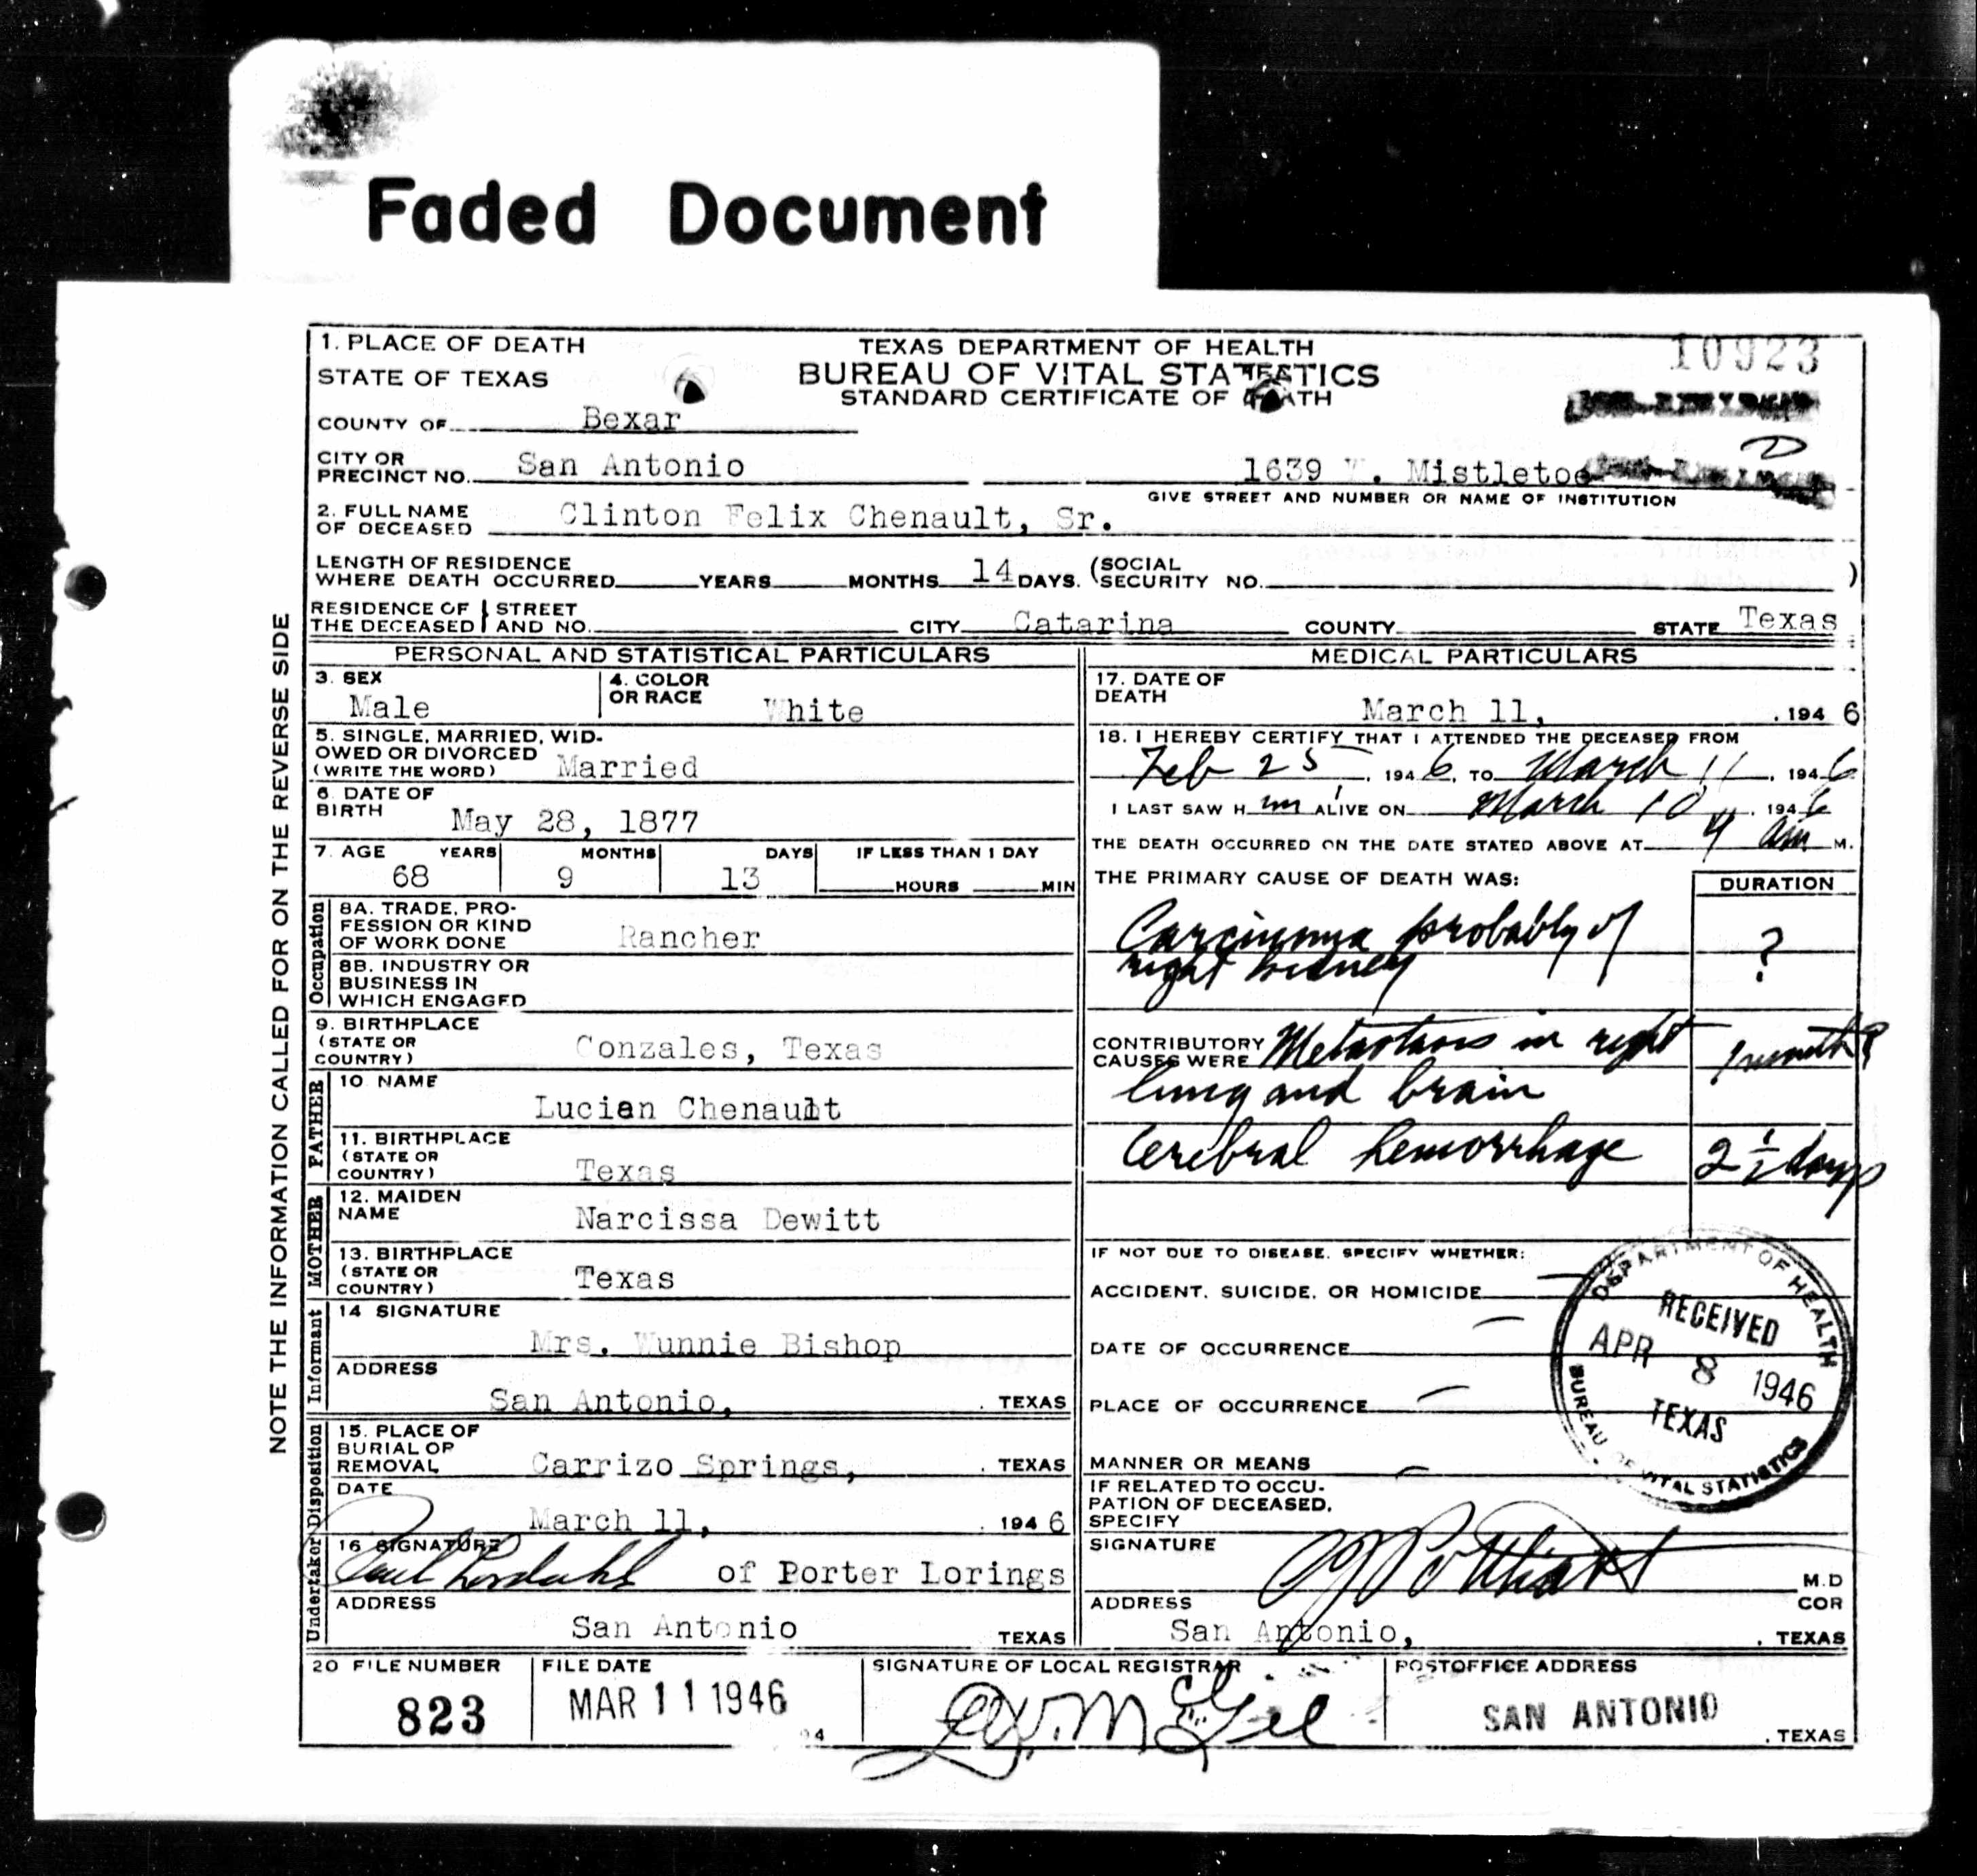 Faded Document
1. PLACE OF DEATH
STATE OF TEXAS
TEXAS DEPARTMENT OF HEALTH
BUREAU OF VITAL STATISTICS
STANDARD CERTIFICATE OF DEATH
10923
COUNTY OF Bexar
CITY OR
PRECINCT NO. San Antonio
1639 W. Mistletoe
GIVE STREET AND NUMBER OR NAME OF INSTITUTION
2. FULL NAME
OF DECEASED Clinton Felix Chenault, Sr.
LENGTH OF RESIDENCE
WHERE DEATH OCCURRED YEARS MONTHS 14 DAYS. (SOCIAL
SECURITY NO. )
RESIDENCE OF STREET
THE DECEASED AND NO. CITY Catarina COUNTY STATE Texas
NOTE THE INFORMATION CALLED FOR ON THE REVERSE SIDE
PERSONAL AND STATISTICAL PARTICULARS
3. SEX
Male
4. COLOR
OR RACE White
5. SINGLE, MARRIED, WID-
OWED OR DIVORCED
(WRITE THE WORD) Married
6. DATE OF
BIRTH May 28, 1877
7. AGE YEARS MONTHS DAYS IF LESS THAN 1 DAY
68 9 13 HOURS MIN
Occupation
8A. TRADE, PRO-
FESSION OR KIND
OF WORK DONE Rancher
8B. INDUSTRY OR
BUSINESS IN
WHICH ENGAGED
9. BIRTHPLACE
(STATE OR
COUNTRY) Conzales, Texas
FATHER
10 NAME
Lucian Chenault
11. BIRTHPLACE
(STATE OR
COUNTRY) Texas
MOTHER
12. MAIDEN
NAME Narcissa Dewitt
13. BIRTHPLACE
(STATE OR
COUNTRY) Texas
Informant
14 SIGNATURE
Mrs. Wunnie Bishop
ADDRESS
San Antonio, . TEXAS
Disposition
15. PLACE OF
BURIAL OR
REMOVAL Carrizo Springs, . TEXAS
DATE
March 11, . 194 6
Undertaker
16 SIGNATURE
of Porter Lorings
ADDRESS
San Antonio TEXAS
MEDICAL PARTICULARS
17. DATE OF
DEATH March 11, . 194 6
18. I HEREBY CERTIFY THAT I ATTENDED THE DECEASED FROM
Feb 25, 194 6, TO March 11, 194 6
I LAST SAW H im ALIVE ON March 10, 194 6
THE DEATH OCCURRED ON THE DATE STATED ABOVE AT 4 am M.
THE PRIMARY CAUSE OF DEATH WAS: DURATION
Carcinoma probably of
right kidney ?
CONTRIBUTORY
CAUSES WERE Metastasis in right 1 month?
lung and brain
Cerebral hemorrhage 2 1/2 days
IF NOT DUE TO DISEASE, SPECIFY WHETHER:
ACCIDENT, SUICIDE, OR HOMICIDE —
DATE OF OCCURRENCE —
PLACE OF OCCURRENCE —
MANNER OR MEANS —
IF RELATED TO OCCU-
PATION OF DECEASED,
SPECIFY
DEPARTMENT OF HEALTH
RECEIVED
APR 8 1946
TEXAS
BUREAU OF VITAL STATISTICS
SIGNATURE
M.D
COR
ADDRESS
San Antonio, . TEXAS
20 FILE NUMBER
823
FILE DATE
MAR 11 1946
94
SIGNATURE OF LOCAL REGISTRAR
POSTOFFICE ADDRESS
SAN ANTONIO
. TEXAS